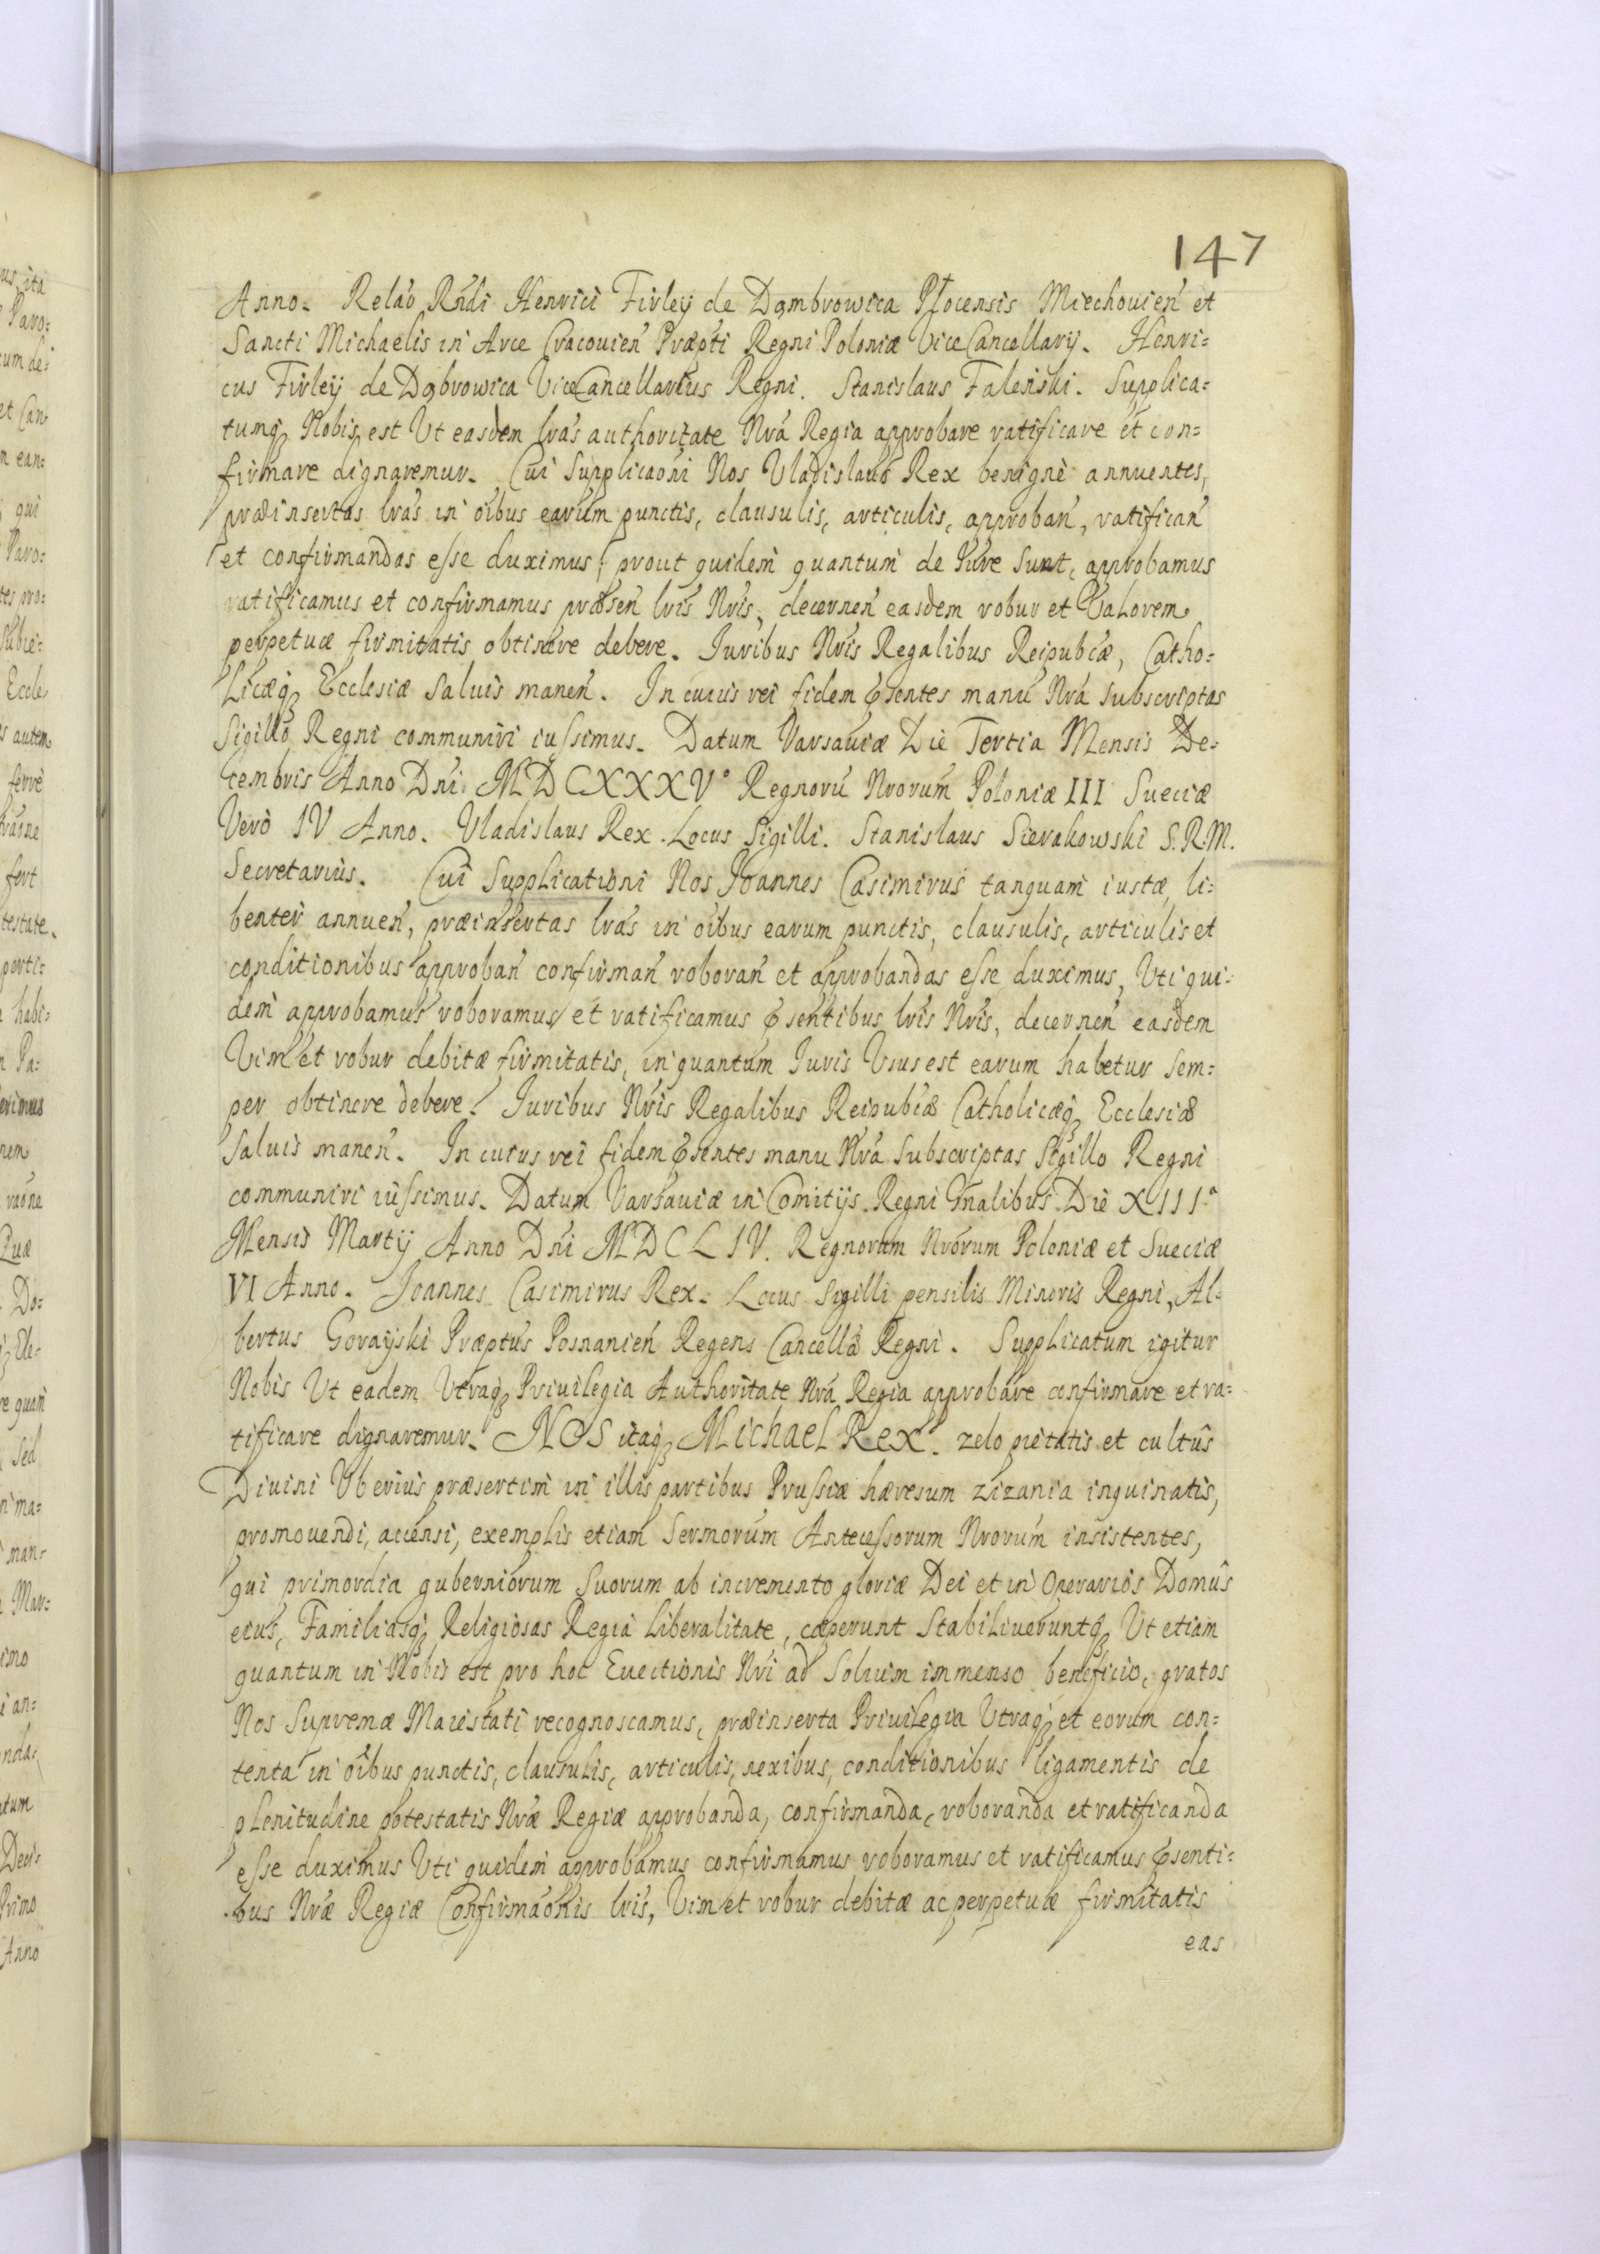 147
Anno. Relaõ Rñdi Henrici Firleÿ de Dąmbrowica Płocensis Miechouień et
Sancti Michaelis in Arce Cracouień Præpti Regni Poloniæ ViceCancellarÿ. Henri=
cus Firleÿ de Dąbrowica ViceCancellarius Regni. Stanislaus Faleński. Supplica=
tumq₃ Nobis est Vt easdem lrãs authoritate Nrã Regia approbare ratificare et con=
firmare dignaremur. Cui Supplicaoñi Nos Vladislaus Rex benignè annuentes,
præinsertas lrãs in oĩbus earum punctis, clausulis, articulis, approbań, ratificań
et confirmandas esse duximus, prout quidem quantum de Iure Sunt, approbamus
ratificamus et confirmamus præseń lrĩs Nrĩs, decerneń easdem robur et Valorem
perpetuæ firmitatis obtinere debere. Iuribus Nrĩs Regalibus Reipubĉæ, Catho=
Licæq₃ Ecclesiæ Saluis maneń. In cuius rei fidem p̃sentes manu Nrã Subscriptas
Sigillo Regni communiri iussimus. Datum Varsauiæ Die Tertia Mensis De=
cembris Anno Dnĩ MDCXXXV° Regnorũ Nrorum Poloniæ III Sueciæ
Verò IV Anno. Vladislaus Rex. Locus Sigilli. Stanislaus Sierakowski S.R.M.
Secretarius. Cui Supplicationi Nos Joannes Casimirus tanquam iustæ, li=
benter annueń, præinsertas lrãs in oĩbus earum punctis, clausulis, articulis et
conditionibus approbań confirmań roborań et approbandas esse duximus, Vti qui=
dem approbamus roboramus et ratificamus p̃sentibus lrĩs Nrĩs, decerneń easdem
Vim et robur debitæ firmitatis, in quantum Iuris Vsus est earum habetur Sem=
per obtinere debere. Iuribus Nrĩs Regalibus Reipubĉæ Catholicæq₃ Ecclesiæ
Saluis maneń. In cuius rei fidem p̃sentes manu Nrã Subscriptas Sigillo Regni
communiri iussimus. Datum Varsauiæ in Comitijs Regni Gñalibus Die XIIIª
Mensis Martÿ Anno Dnĩ MDCLIV. Regnorum Nrorum Poloniæ et Sueciæ
VI Anno. Joannes Casimirus Rex. Locus Sigilli pensilis Minoris Regni, Al=
bertus Goraÿski Præptus Posnanień Regens Cancellã Regni. Supplicatum igitur
Nobis Vt eadem Vtraq₃ Priuilegia Authoritate Nrã Regia approbare confirmare et ra=
tificare dignaremur. NOS itaq₃ Michael Rex. zelo pietatis et cultûs
Diuini Vberius præsertim in illis partibus Prussiæ hæresum zizania inquinatis,
promouendi, accensi, exemplis etiam Sermorum Antecessorum Nrorum insistentes,
qui primordia guberniorum Suorum ab incremento gloriæ Dei et in Operarios Domûs
eius, Familiasq₃ Religiosas Regia Liberalitate, cæperunt StabiLiueruntq₃ Vt etiam
quantum in Nobis est pro hoc Euectionis Nrĩ ad Solium immenso beneficio, gratos
Nos Supremæ Maiestati recognoscamus, præinserta Priuilegia Vtraq₃ et eorum con=
tenta in oĩbus punctis, clausulis, articulis, nexibus, conditionibus ligamentis de
plenitudine potestatis Nræ Regiæ approbanda, confirmanda, roboranda et ratificanda
esse duximus Vti quidem approbamus confirmamus roboramus et ratificamus p̃senti=
bus Nræ Regiæ Confirmaoñis lrĩs, Vim et robur debitæ ac perpetuæ firmitatis
eas